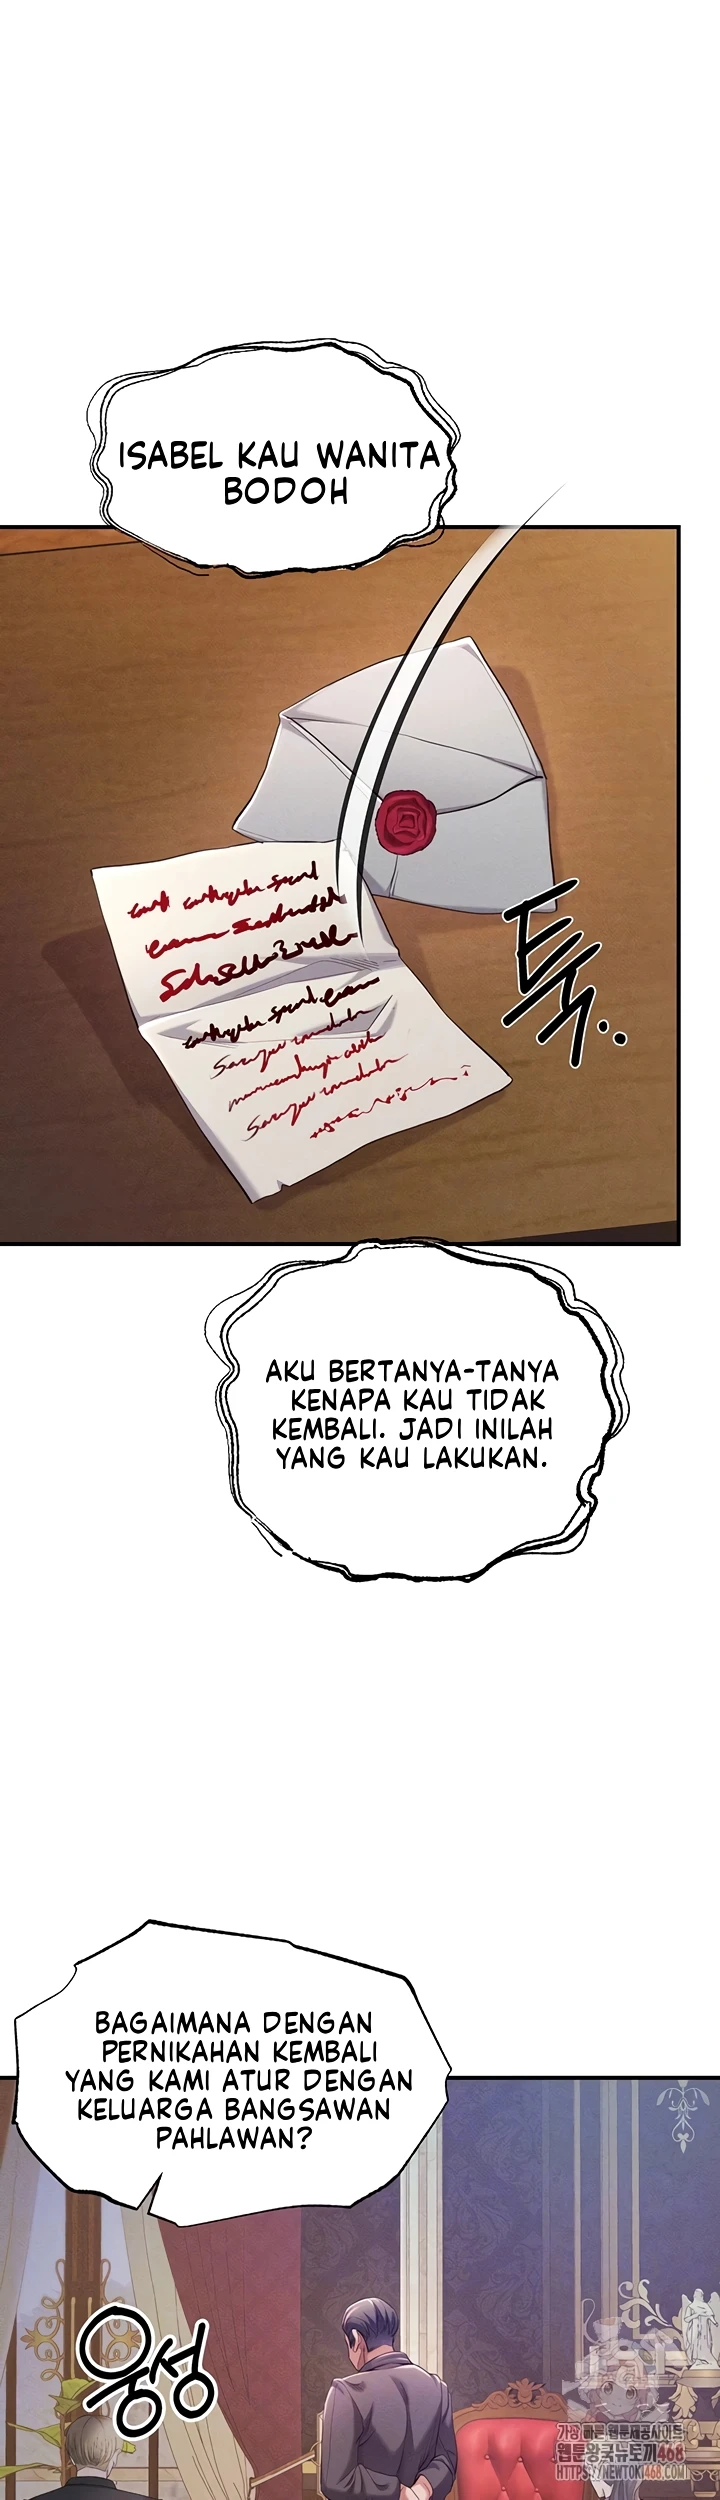 ISABEL KAU WANITA
BODOH
툭..
AKU BERTANYA-TANYA
KENAPA KAU TIDAK
KEMBALI. JADI INILAH
YANG KAU LAKUKAN.
BAGAIMANA DENGAN
PERNIKAHAN KEMBALI
YANG KAMI ATUR DENGAN
KELUARGA BANGSAWAN
PAHLAWAN?
웅성
가장 빠른 웹툰제공사이트
웹툰왕국뉴토끼468
HTTPS://NEWTOKI468.COM